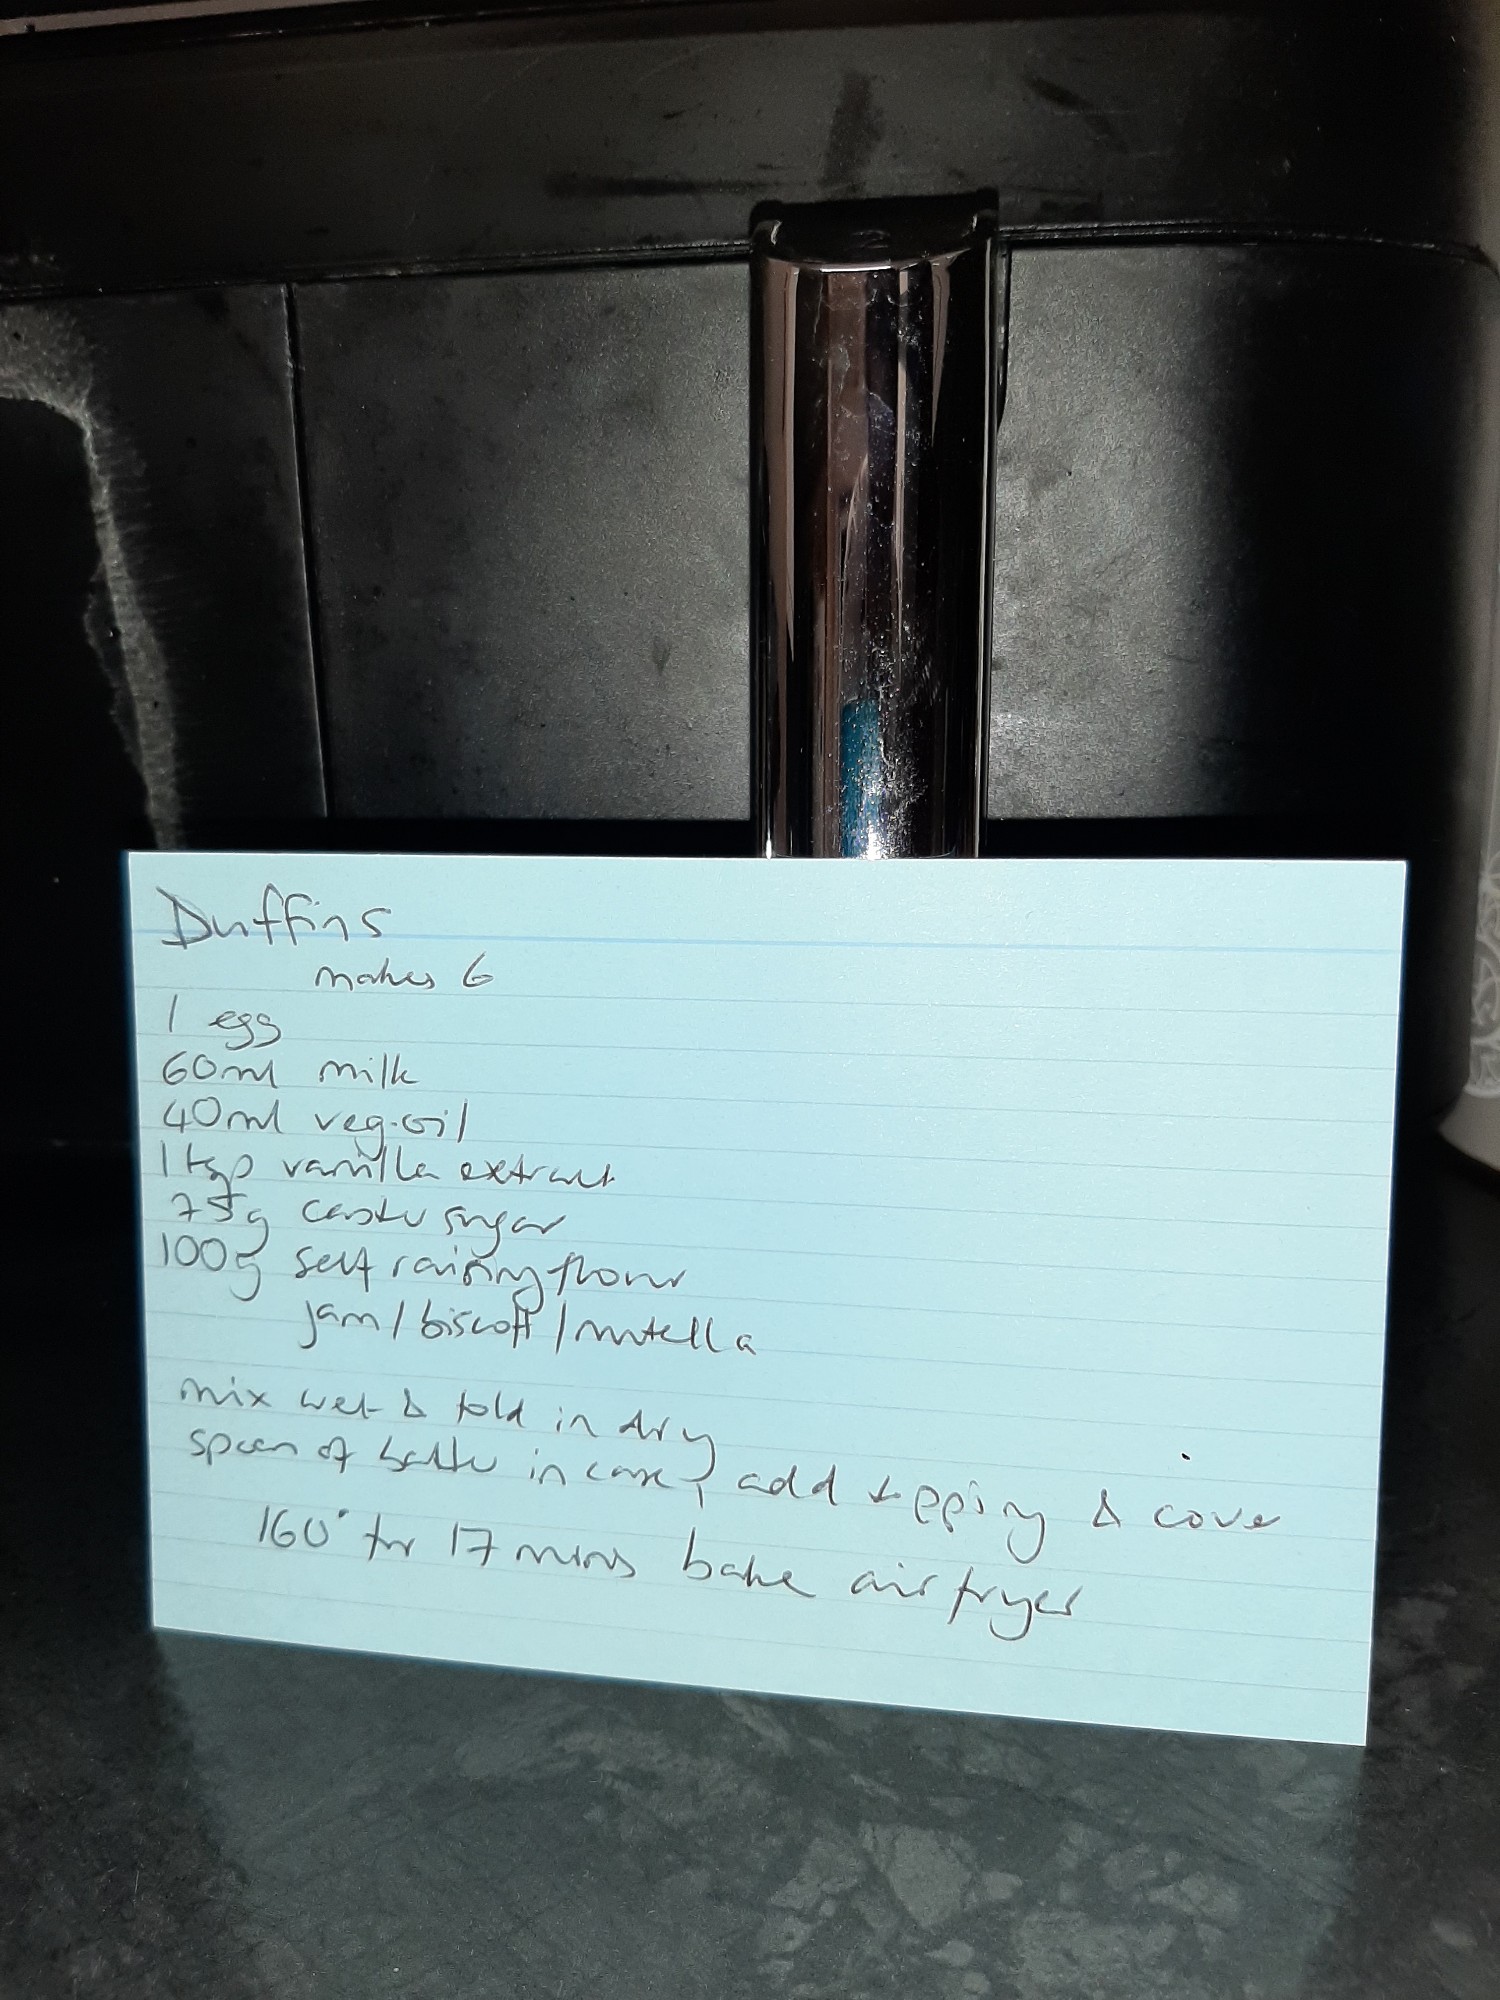 Duffins
makes 6
1 egg
60ml milk
40ml veg.oil
1 tsp vanilla extract
75g caster sugar
100g self raising flour
jam/biscoff/nutella
mix wet & fold in dry
spoon of batter in case, add topping & cover
160° for 17 mins bake air fryer